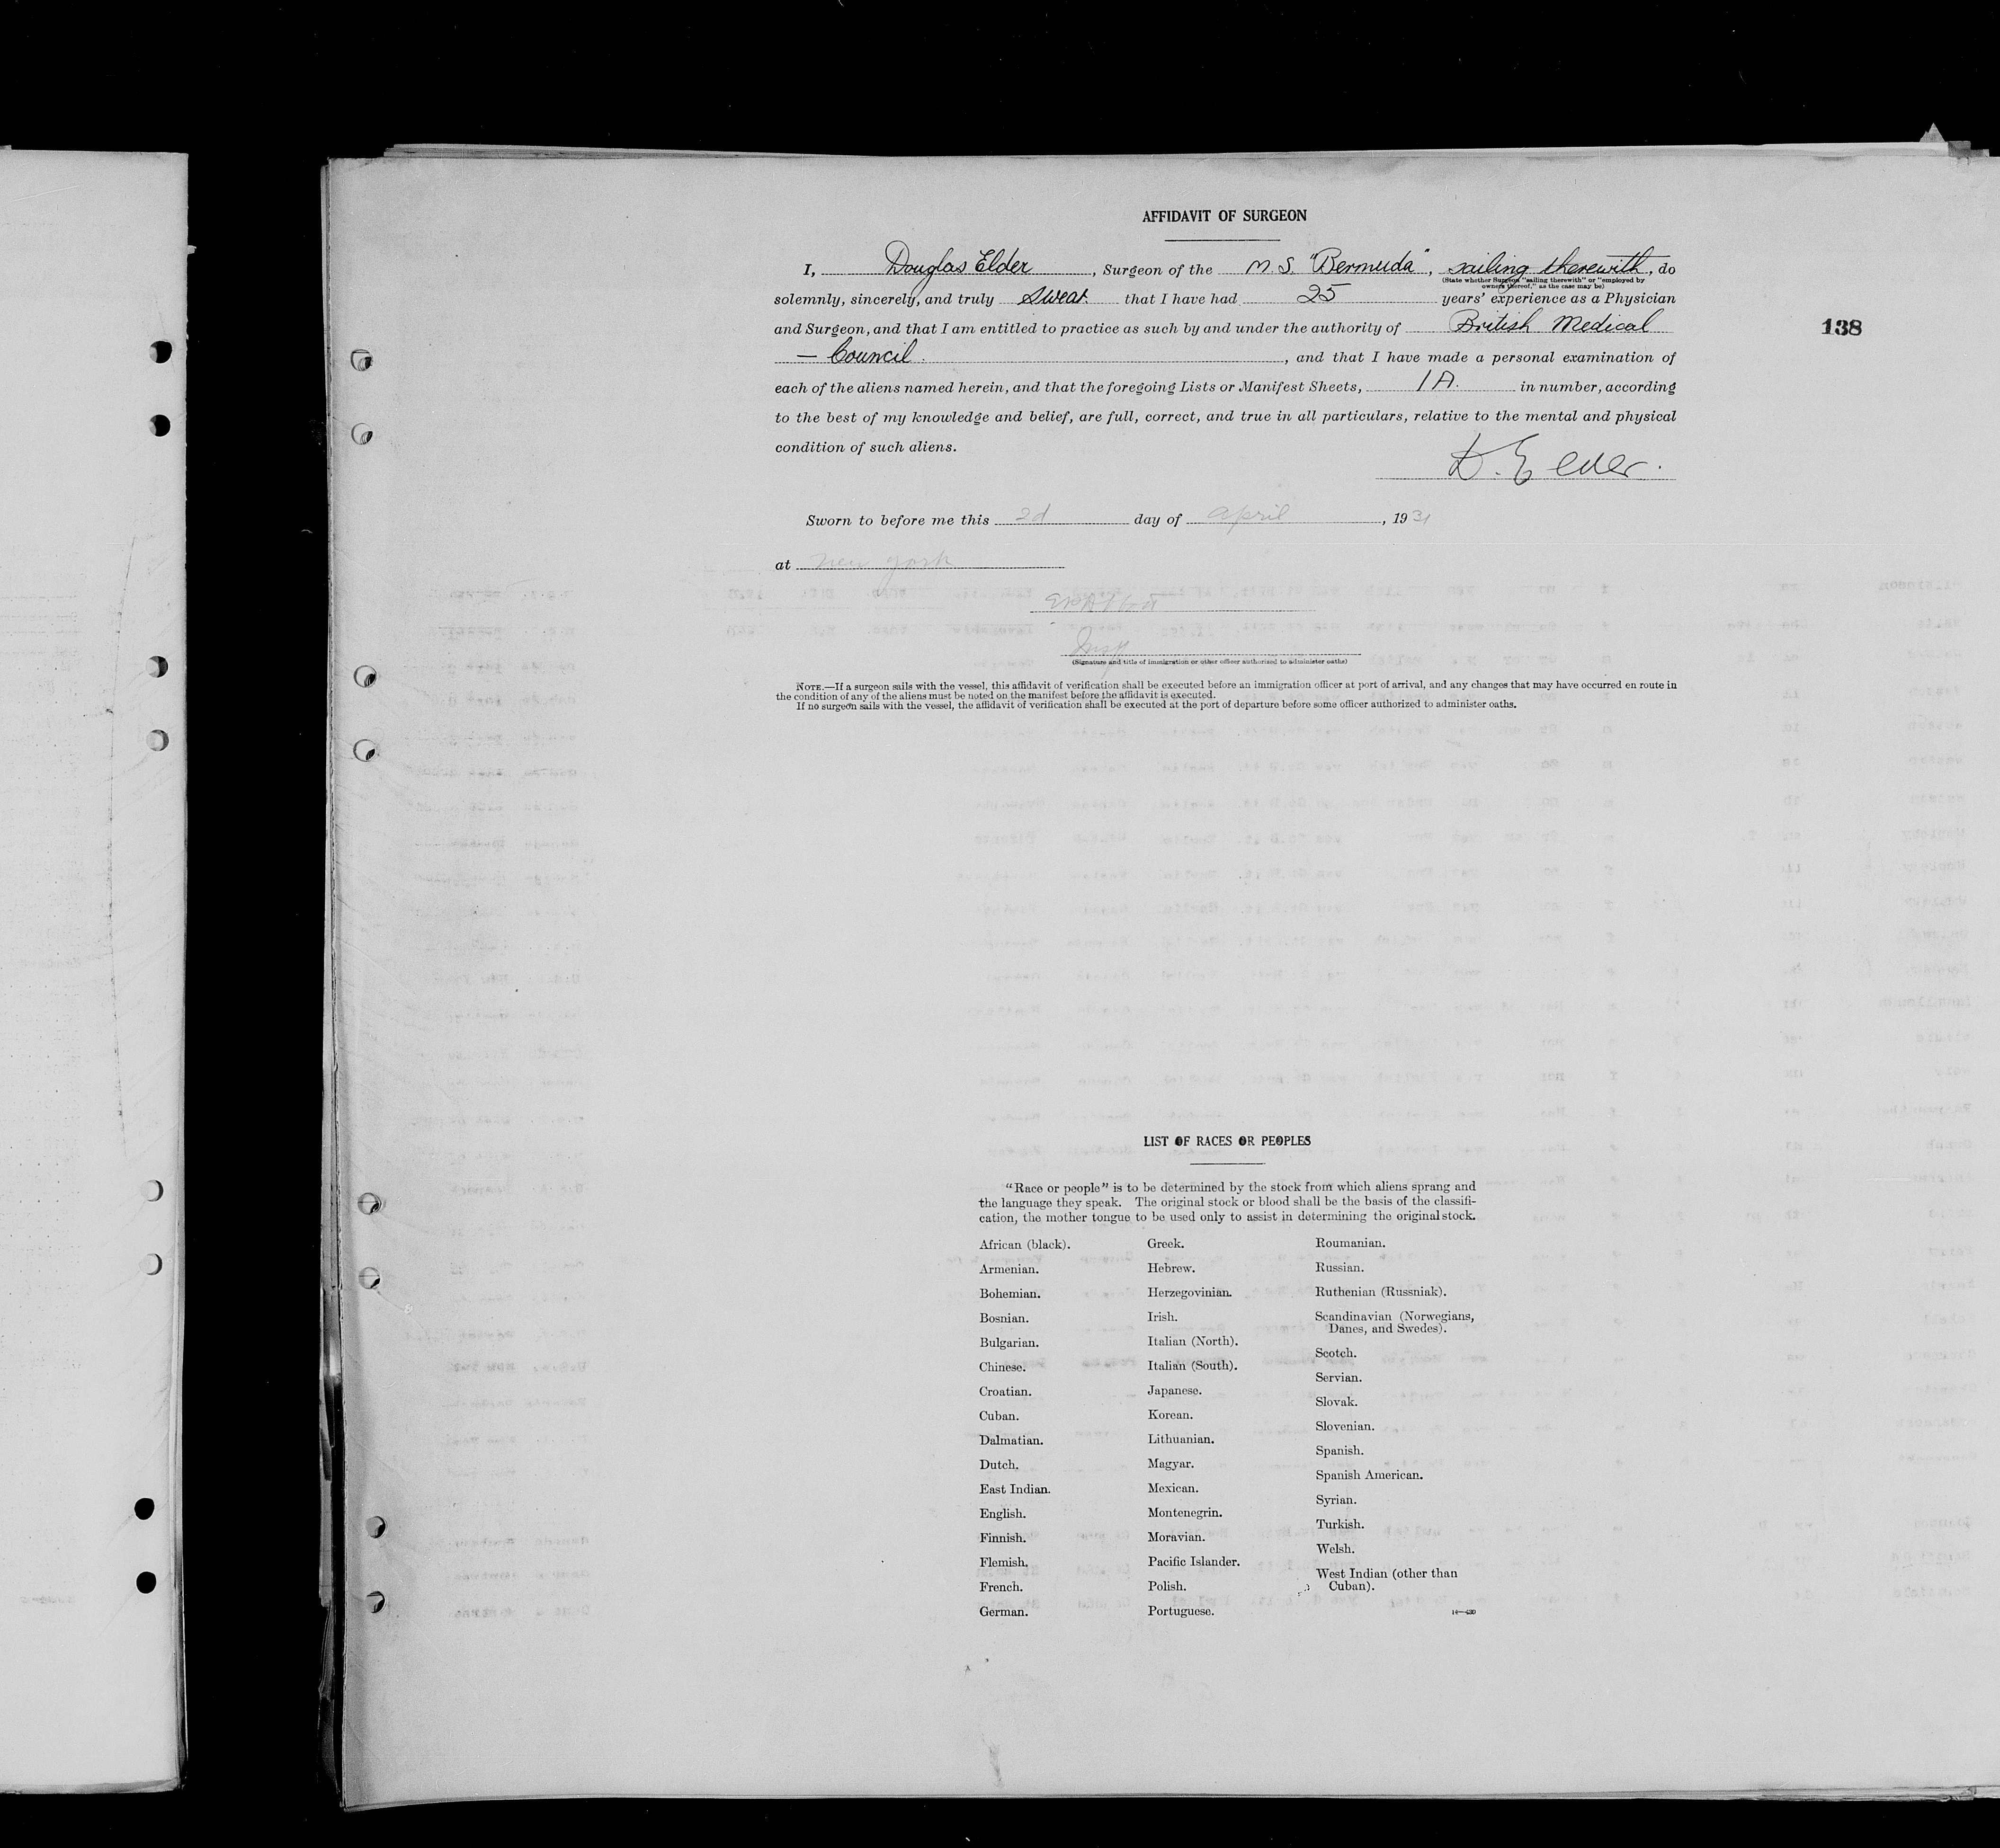 AFFIDAVIT OF SURGEON
I, Douglas Elder, Surgeon of the M.S. "Bermuda", sailing therewith, do
(State whether Surgeon "sailing therewith" or "employed by
owners thereof," as the case may be)
solemnly, sincerely, and truly swear that I have had 25 years' experience as a Physician
and Surgeon, and that I am entitled to practice as such by and under the authority of British Medical
138
— Council., and that I have made a personal examination of
each of the aliens named herein, and that the foregoing Lists or Manifest Sheets, 1A. in number, according
to the best of my knowledge and belief, are full, correct, and true in all particulars, relative to the mental and physical
condition of such aliens.
D. Elder.
Sworn to before me this 2d day of April, 1931
at New York
Insp
(Signature and title of immigration or other officer authorized to administer oaths)
NOTE.—If a surgeon sails with the vessel, this affidavit of verification shall be executed before an immigration officer at port of arrival, and any changes that may have occurred en route in
the condition of any of the aliens must be noted on the manifest before the affidavit is executed.
If no surgeon sails with the vessel, the affidavit of verification shall be executed at the port of departure before some officer authorized to administer oaths.
LIST OF RACES OR PEOPLES
"Race or people" is to be determined by the stock from which aliens sprang and
the language they speak. The original stock or blood shall be the basis of the classifi-
cation, the mother tongue to be used only to assist in determining the original stock.
African (black).
Armenian.
Bohemian.
Bosnian.
Bulgarian.
Chinese.
Croatian.
Cuban.
Dalmatian.
Dutch.
East Indian.
English.
Finnish.
Flemish.
French.
German.
Greek.
Hebrew.
Herzegovinian.
Irish.
Italian (North).
Italian (South).
Japanese.
Korean.
Lithuanian.
Magyar.
Mexican.
Montenegrin.
Moravian.
Pacific Islander.
Polish.
Portuguese.
Roumanian.
Russian.
Ruthenian (Russniak).
Scandinavian (Norwegians,
Danes, and Swedes).
Scotch.
Servian.
Slovak.
Slovenian.
Spanish.
Spanish American.
Syrian.
Turkish.
Welsh.
West Indian (other than
Cuban).